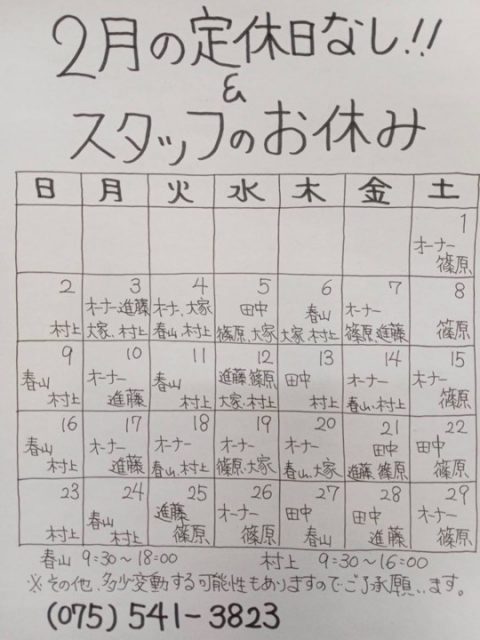 2月の定休日なし!!
&
スタッフのお休み
日 月 火 水 木 金 土
1
オーナー
篠原
2 3 4 5 6 7 8
村上
オーナー、進藤
大家、村上
オーナー、大家
春山、村上
田中
篠原、大家
春山
大家、村上
オーナー
篠原、進藤
篠原
9 10 11 12 13 14 15
春山
村上
オーナー
進藤
春山
村上
進藤、篠原
大家、村上
田中
村上
オーナー
春山、村上
オーナー
篠原
16 17 18 19 20 21 22
春山
村上
オーナー
進藤
オーナー
春山、村上
オーナー
篠原、大家
オーナー
春山、大家
田中
進藤、篠原
田中
篠原
23 24 25 26 27 28 29
村上
春山
村上
進藤
篠原
オーナー
篠原
田中
春山
田中
進藤
オーナー
篠原
春山 9:30〜18:00 村上 9:30〜16:00
※その他、多少変動する可能性もありますのでご了承願います。
(075)541-3823